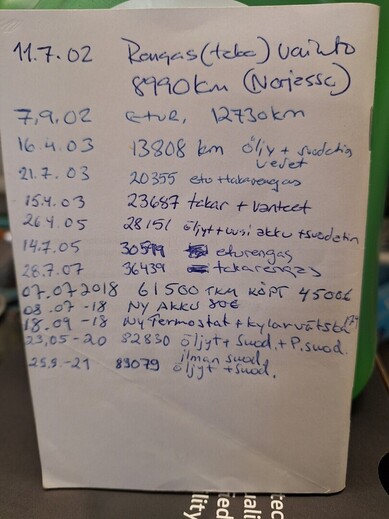 11.7.02 Rengas (taka) vaihto
8990km (Norjassa)
7,9.02 etur. 12730km
16.4.03 13808 km öljy + suodatin
vedet
21.7.03 20355 etu+takarengas
15.4.03 23687 takar + vanteet
26.4.05 28151 öljyt+uusi akku +suodatin
14.7.05 30599 eturengas
28.7.07 36439 takarengas
07.07.2018 61500 TKM KÖPT 4500€
08.07 -18 NY AKKU 80€
18.09 -18 Ny Termostat + kylarvätska
23,05-20 82830 öljyt + suod. + P.suod.
ilman suod.
25.9.-21 83079 öljyt + suod.